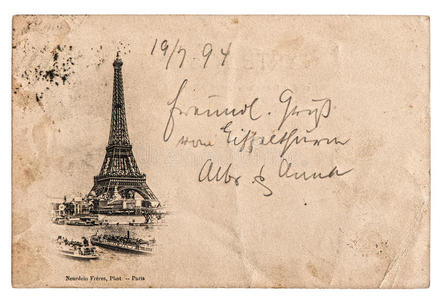 19/7 94
freundl. Gruß
vom Eiffelthurm
Albr. & Anna
Neurdein Frères, Phot. — Paris